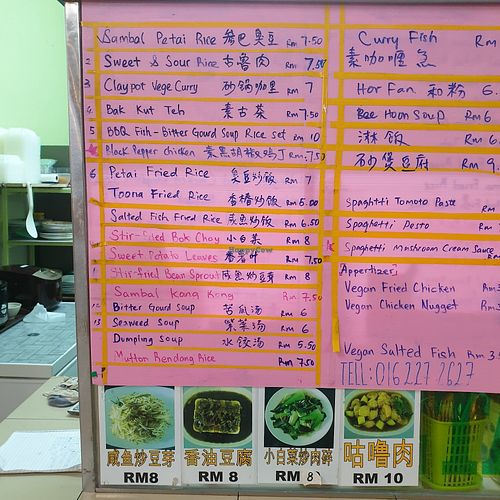 Sambal Petai Rice 叁巴臭豆 RM 7.50
2 Sweet & Sour Rice 古鲁肉 RM 7.50
3 Claypot Vege Curry 砂锅咖哩 RM 7
4 Bak Kut Teh 素古茶 RM 7.50
5 BBQ Fish-Bitter Gourd Soup Rice set RM 10
Black Pepper Chicken 素黑胡椒鸡丁 RM 7.50
6 Petai Fried Rice 臭豆炒饭 RM 7
Toona Fried Rice 香椿炒饭 RM 5.00
Salted Fish Fried Rice 咸鱼炒饭 RM 6.50
Stir-fried Bok Choy 小白菜 RM 8
Sweet Potato Leaves 番薯叶 RM 7.50
Stir-fried Bean Sprout 咸鱼炒豆芽 RM 8
Sambal Kang Kong RM 7.50
12 Bitter Gourd Soup 苦瓜汤 RM 6
13 Seaweed Soup 紫菜汤 RM 6
Dumpling Soup 水饺汤 RM 5.50
Mutton Rendang Rice RM 7.50
Curry Fish RM
素咖喱鱼
Hor Fan 和粉 6.
Bee Hoon Soup RM 6
淋饭 RM 6
砂煲豆腐 RM 9.
Spaghtti Tomoto Paste RM
Spaghtti Pesto RM 7
Spaghetti Mushroom Cream Sauce RM
Appertizer
Vegan Fried Chicken RM 3
Vegan Chicken Nugget RM 3
Vegan Salted Fish RM 3
TELL: 016 227 2627
咸鱼炒豆芽
RM8
香油豆腐
RM 8
小白菜炒肉碎
RM 8
咕噜肉
RM 10